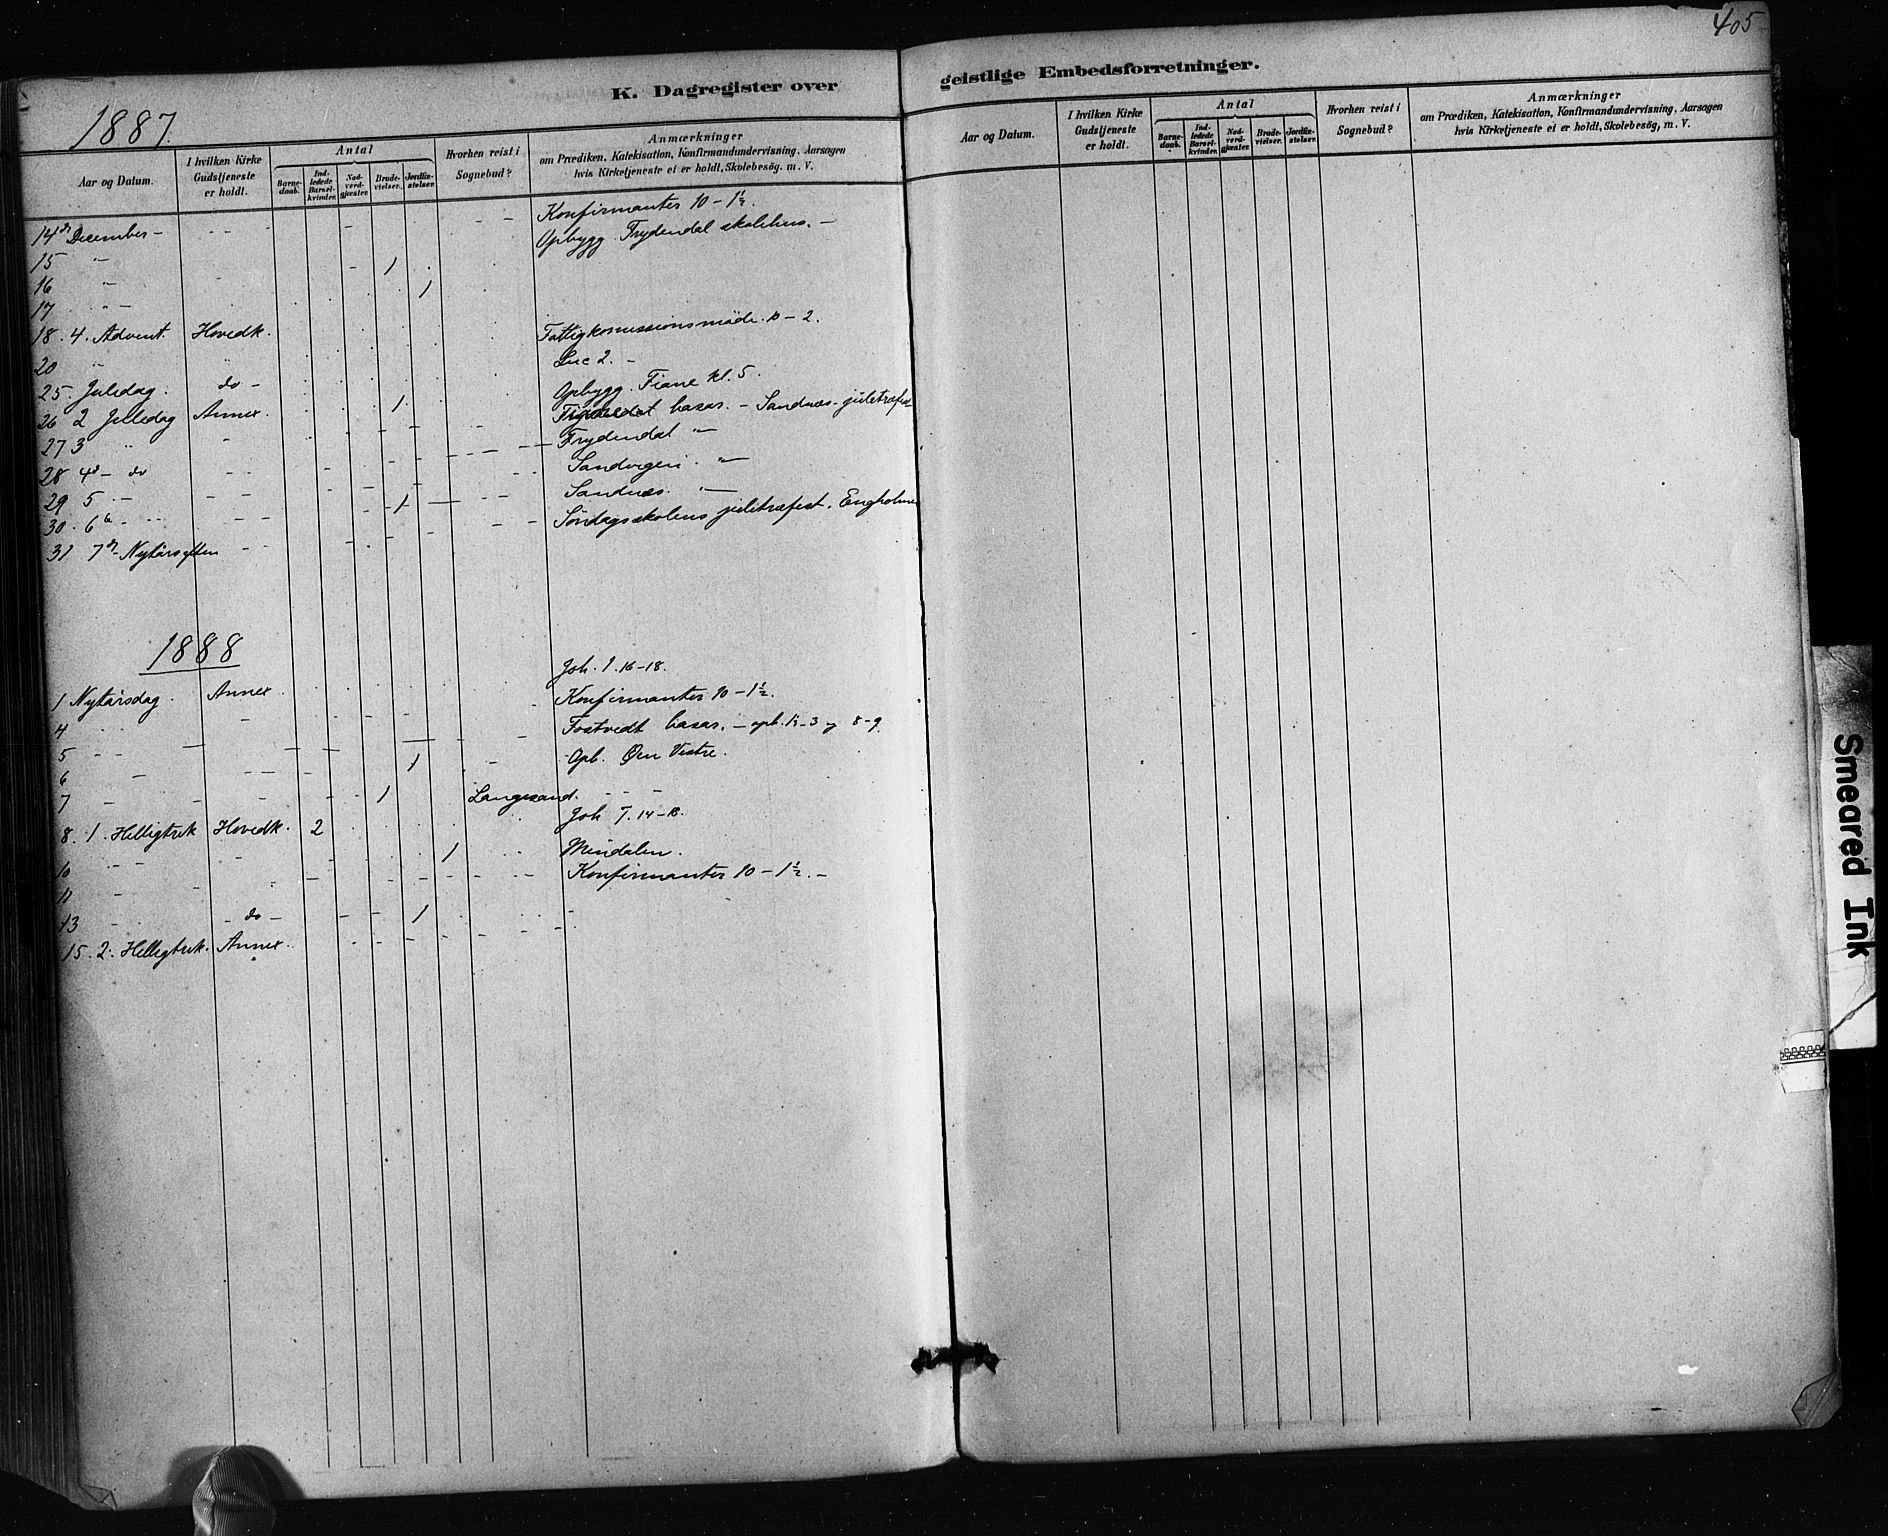 405
K. Dagregister over
geistlige Embedsforretninger.
1887.
Aar og Datum.
I hvilken Kirke Gudstjeneste er holdt.
Antal
Barnedaab.
Indledede Barselkvinder.
Nadverdgjæster.
Brudevielser.
Jordfæstelser.
Hvorhen reist i Sognebud?
Anmærkninger
om Prædiken, Katekisation, Konfirmandundervisning, Aarsagen hvis Kirketjeneste ei er holdt, Skolebesög, m. V.
14 December - Konfirmanter 10 - 1½.
15 " Opbygg. Frydendal skolehus. -
16 " 1
17 " 1
18. 4. Advent. Hovedk.
20 " Fattigkomissionsmöde 10 - 2.
25 Juledag. do - Luc 2. -
26 2 Juledag Annex Opbygg. Fiane kl. 5.
27 3 " 1 basar. - Sandnæs - juletræfest
28 4 - do Frydendal "
29 5 - Sandvigen "
30. 6 - 1 Sandnæs. "
31 7 - Nytårsaften Söndagsskolens juletræfest. Engholmen
1888
1 Nytårsdag. Annex. Joh. 1. 16-18.
4 Konfirmanter 10 - 1½.
5 Fostvedt basar. -
6 1 Opb. Öen Vestre.
7 1 Langesand.
8. 1. Helligtrek Hovedk. 2 Joh 7. 14-18.
10 1 Mindalen.
11 Konfirmanter 10 - 1½. -
13 - do - 1
15. 2. Helligtrek. Annex.
Aar og Datum.
I hvilken Kirke Gudstjeneste er holdt.
Antal
Barnedaab.
Indledede Barselkvinder.
Nadverdgjæster.
Brudevielser.
Jordfæstelser.
Hvorhen reist i Sognebud?
Anmærkninger
om Prædiken, Katekisation, Konfirmandundervisning, Aarsagen hvis Kirketjeneste ei er holdt, Skolebesög, m. V.
Smeared Ink